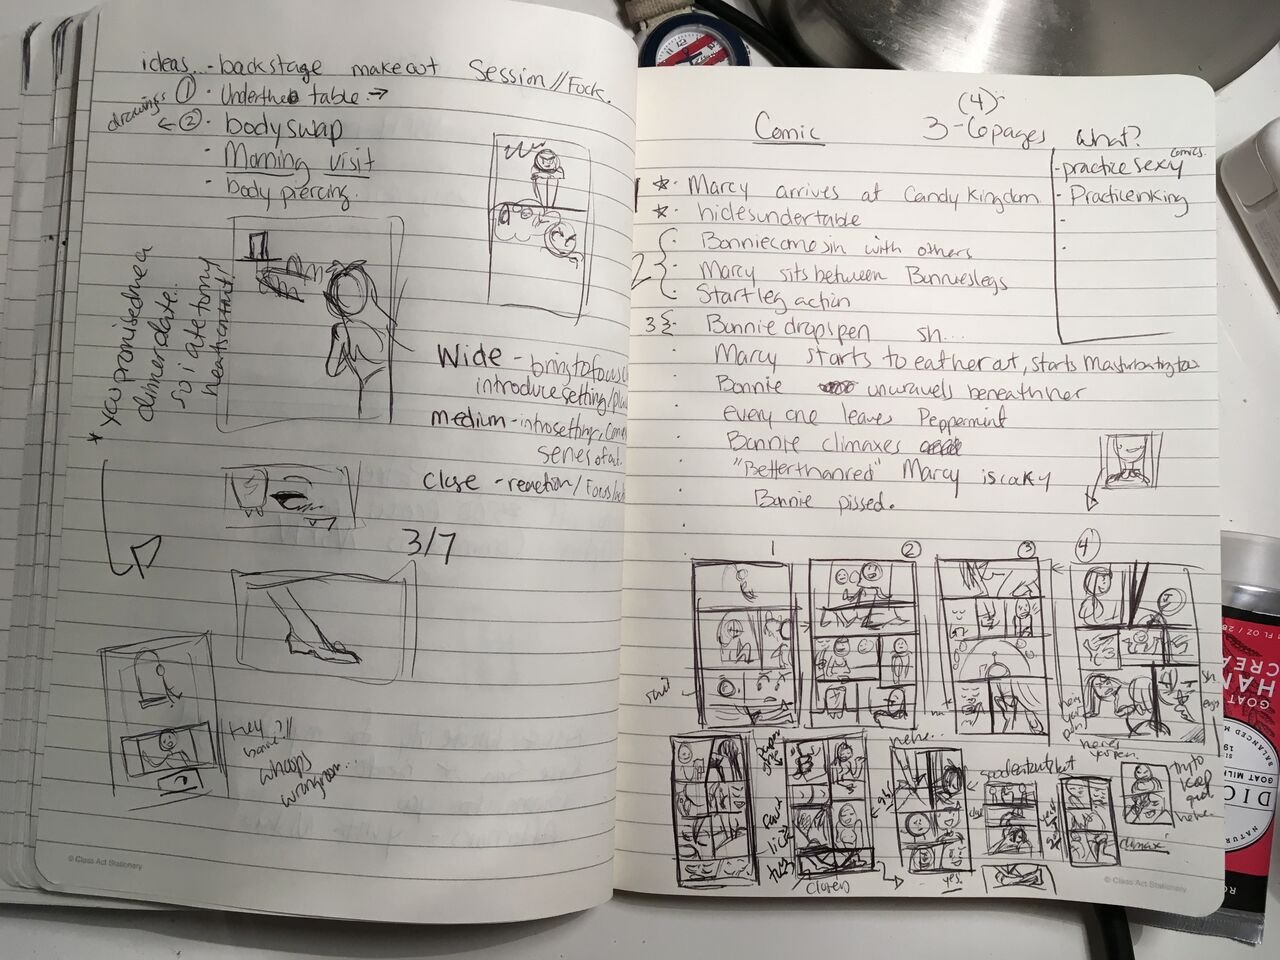 ideas.. - backstage makeout Session // Fuck.
drawings ① · Underthe table →
← ② · bodyswap
· Morning visit
· body piercing.
* you promised me a
dinner date..
so i ate to my
heart's content!
Wide - bring to focus
introduce setting/
medium - intro setting,
series of
Close - reaction/
3/7
Hey
bonnie?!!
whoops
wrong room...
© Class Act Stationery
(4)-
Comic 3-6 pages What?
- practice sexy comics.
- Practice inking
1 * · Marcy arrives at Candy Kingdom
* · hides under table
2 { · Bonnie comes in with others
· Marcy sits between Bonnies legs
· Start leg action
3 { · Bonnie drops pen sh...
· Marcy starts to eat her out, starts Masturbating too
· Bonnie unravels beneath her
· every one leaves Peppermint
· Bonnie climaxes
· "Better than red" Marcy is cocky
· Bonnie pissed.
1 ② ③ ④
sh
here's
pen.
hehe...
try to
keep
quiet
hehe.
climax
yes.
© Class Act Stationery
FL OZ / 28
HAN
CREA
GOAT
BALANCED
GOAT MILK
DIC
NATUR